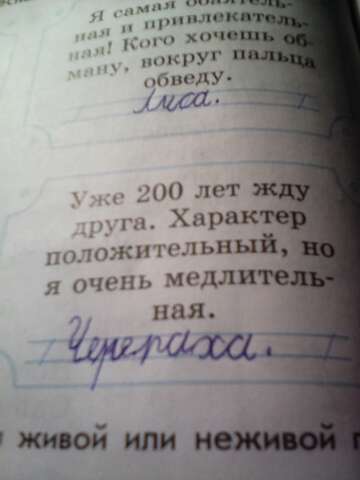 Я самая обаятель-
ная и привлекатель-
ная! Кого хочешь об-
ману, вокруг пальца
обведу.
Лиса.
Уже 200 лет жду
друга. Характер
положительный, но
я очень медлитель-
ная.
Черепаха.
живой или неживой